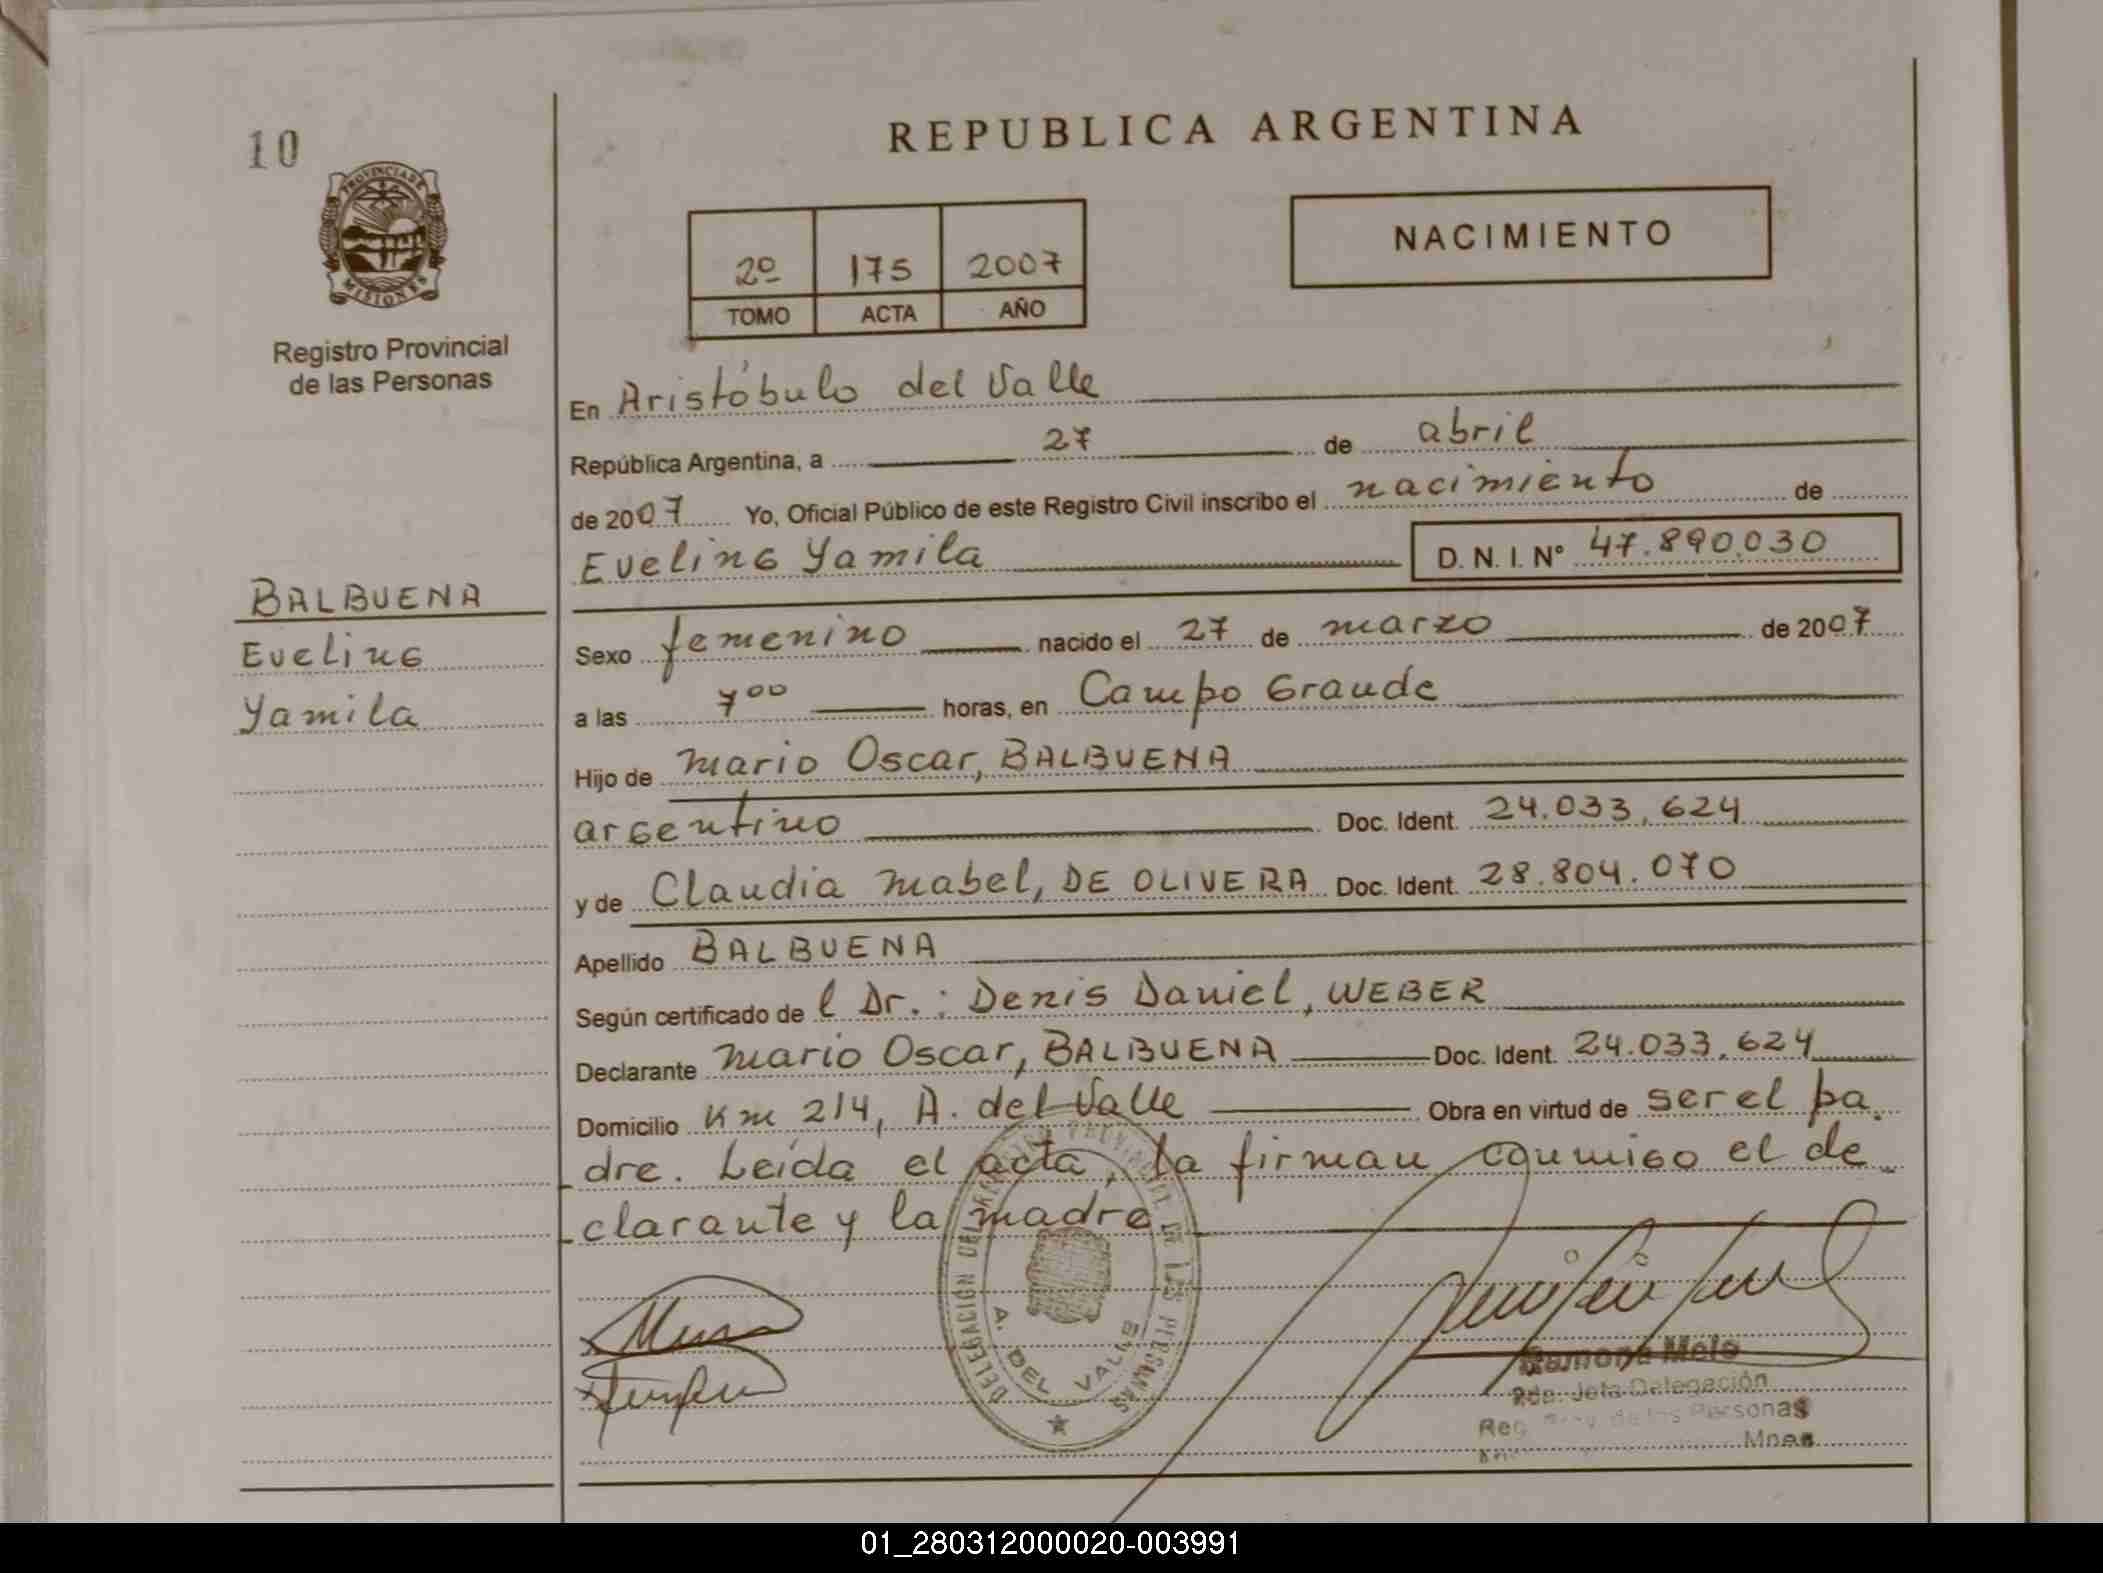 10
PROVINCIA DE
MISIONES
Registro Provincial
de las Personas
REPUBLICA ARGENTINA
2º 175 2007
TOMO ACTA AÑO
NACIMIENTO
En Aristóbulo del Valle
República Argentina, a 27 de abril
de 2007 Yo, Oficial Público de este Registro Civil inscribo el nacimiento de
Eveling Yamila D. N. I. Nº 47.890.030
BALBUENA
Eveling
Yamila
Sexo femenino nacido el 27 de marzo de 2007
a las 7⁰⁰ horas, en Campo Grande
Hijo de Mario Oscar, BALBUENA
argentino Doc. Ident. 24.033.624
y de Claudia Mabel, DE OLIVERA Doc. Ident. 28.804.070
Apellido BALBUENA
Según certificado de l Dr.: Denis Daniel, WEBER
Declarante Mario Oscar, BALBUENA Doc. Ident. 24.033.624
Domicilio Km 214, A. del Valle Obra en virtud de ser el pa-
dre. Leída el acta, la firman conmigo el de-
clarante y la madre
DELEGACION DEL REGISTRO PROVINCIAL DE LAS PERSONAS
A. DEL VALLE
Ramona Melo
Jefa Delegación
Reg. Prov. de las Personas
Mnes.
01_280312000020-003991